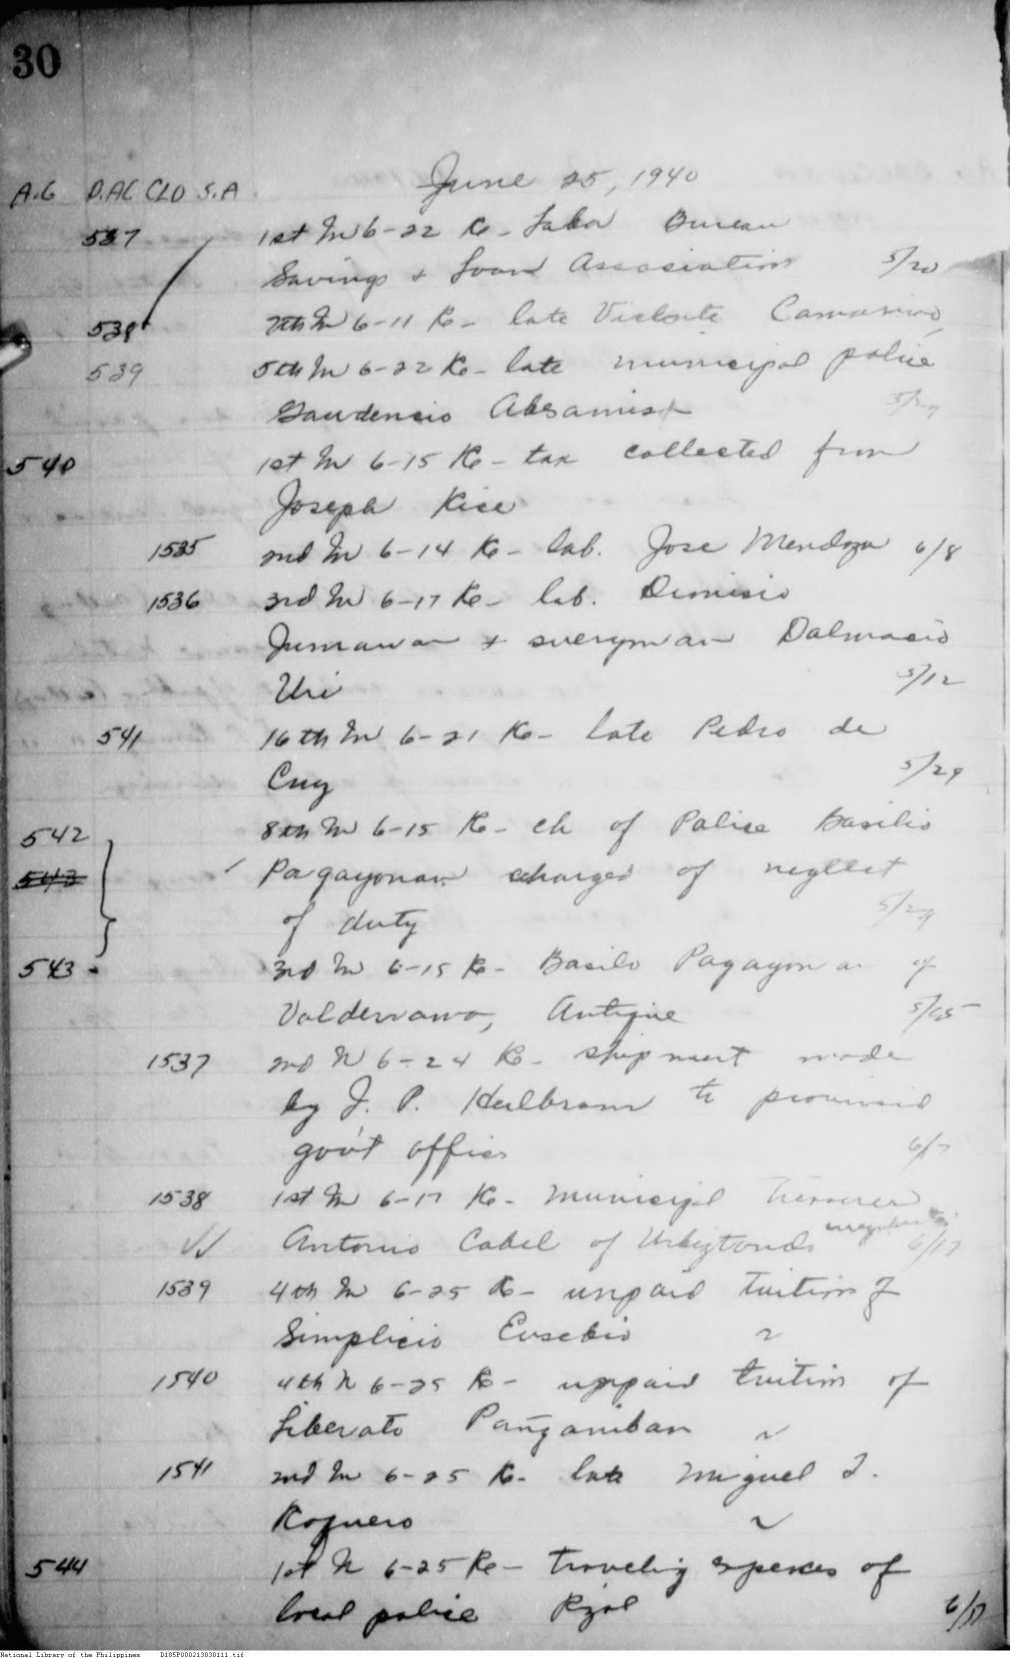 30
June 25, 1940
A.G D.AC CLD S.A
537 1st In 6-22 Re - Labor Bureau
Savings & Loan Association 5/20
538 7th In 6-11 Re - late Camarino
539 5th In 6-22 Re - late municipal police
Gaudencio 5/27
540 1st In 6-15 Re - tax collected from
Joseph Rice
1535 2nd In 6-14 Re - lab. Jose Mendoza 6/8
1536 3rd In 6-17 Re - lab. Dionisio
Jumawan & Dalmacio
5/12
541 16th In 6-21 Re - late Pedro de
Cruz 5/29
542 8th In 6-15 Re - ch of Police Basilio
543 Pagayonan charged of neglect
of duty 5/29
543 3rd In 6-15 Re - Basilo Pagayonan of
Valderrama, Antique
1537 2nd N 6-24 Re - shipment made
by J. P. Heilbronn to provincial
gov't offices 6/7
1538 1st In 6-17 Re - Municipal Treasurer
Antonio Cabel of Urbiztondo 6/17
1539 4th In 6-25 Re - unpaid tuition of
Simplicio Eusebio
1540 4th N 6-25 Re - unpaid tuition of
Liberato Pañganiban
1541 2nd In 6-25 Re - late Miguel
Roquero
544 1st N 6-25 Re - traveling expenses of
local police Rizal
National Library of the Philippines D185P000213030111.tif